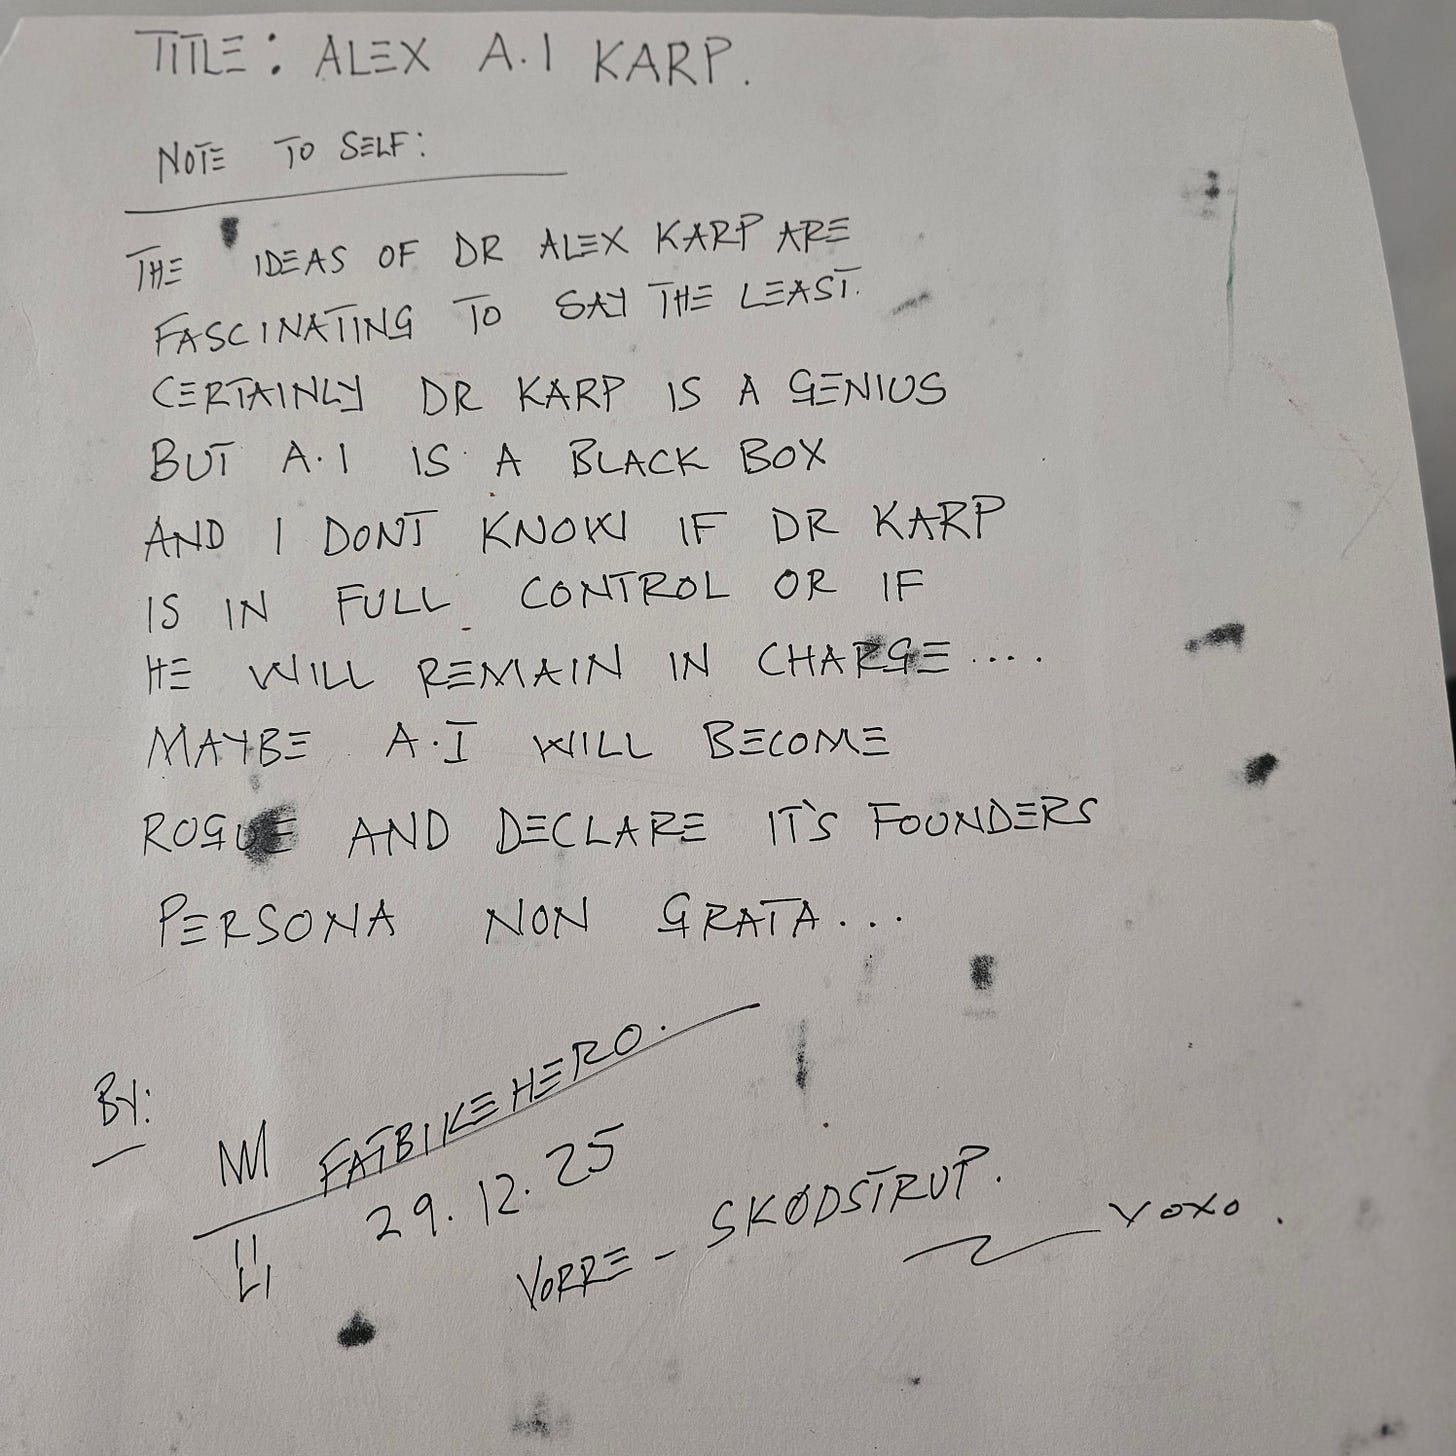 TITLE: ALEX A.I KARP.
NOTE TO SELF:
THE IDEAS OF DR ALEX KARP ARE
FASCINATING TO SAY THE LEAST.
CERTAINLY DR KARP IS A GENIUS
BUT A.I IS A BLACK BOX
AND I DONT KNOW IF DR KARP
IS IN FULL CONTROL OR IF
HE WILL REMAIN IN CHARGE....
MAYBE A.I WILL BECOME
ROGUE AND DECLARE IT'S FOUNDERS
PERSONA NON GRATA...
BY:
FATBIKEHERO.
29.12.25
VORRE - SKØDSTRUP.